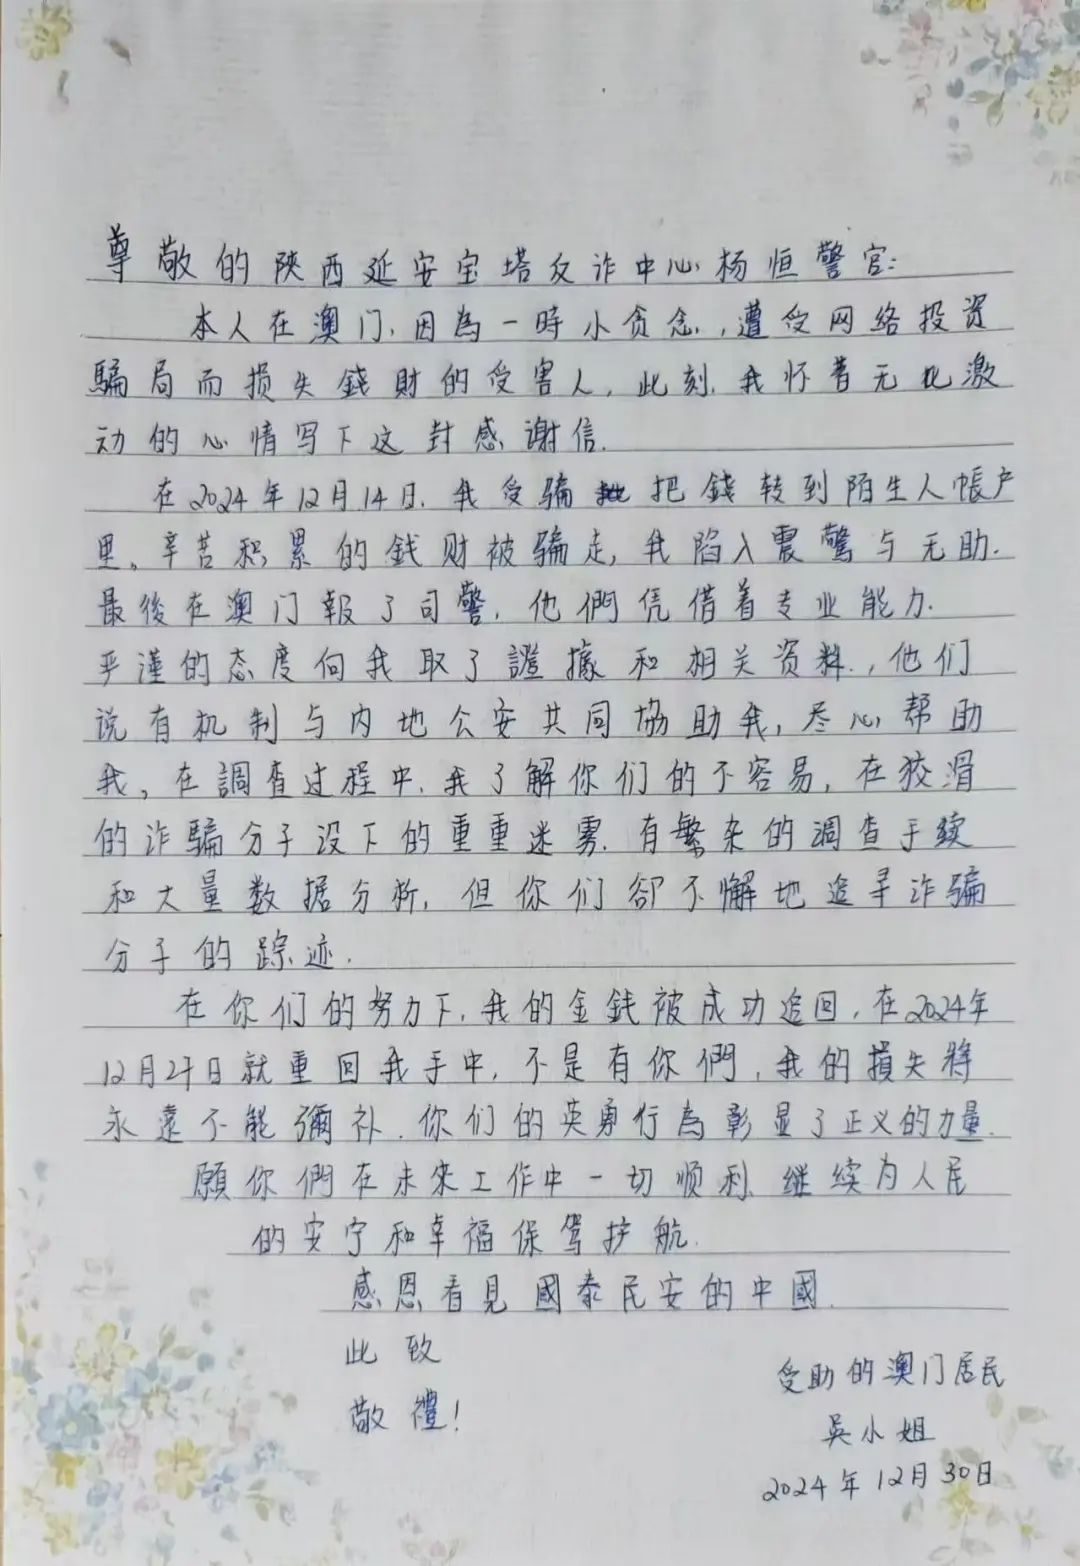 尊敬的陕西延安宝塔反诈中心杨恒警官:
本人在澳门,因為一時小贪念,遭受网络投资
騙局而損失錢財的受害人,此刻,我怀着无比激
动的心情写下这封感谢信.
在2024年12月14日,我受騙把錢转到陌生人帳户
里。辛苦积累的錢财被骗走,我陷入震驚与无助.
最後在澳门報了司警,他們凭借着专业能力.
严谨的态度向我取了證據和相关资料.,他们
说有机制与内地公安共同協助我,尽心帮助
我。在調查过程中,我了解你们的不容易,在狡滑
的诈骗分子设下的重重迷雾.有繁杂的调查手续
和大量数据分析,但你们卻不懈地追寻诈骗
分子的踪迹.
在你们的努力下,我的金錢被成功追回,在2024年
12月27日就重回我手中,不是有你們,我的損失將
永遠不能彌补.你们的英勇行為彰显了正义的力量.
願你們在未來工作中一切顺利、继续为人民
的安宁和幸福保驾护航.
感恩看見國泰民安的中國.
此致
敬禮!
受助的澳门居民
吳小姐
2024年12月30日